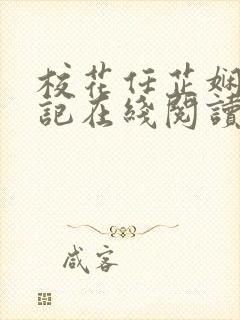 校花任芷娴
記在綫閱讀
咸客